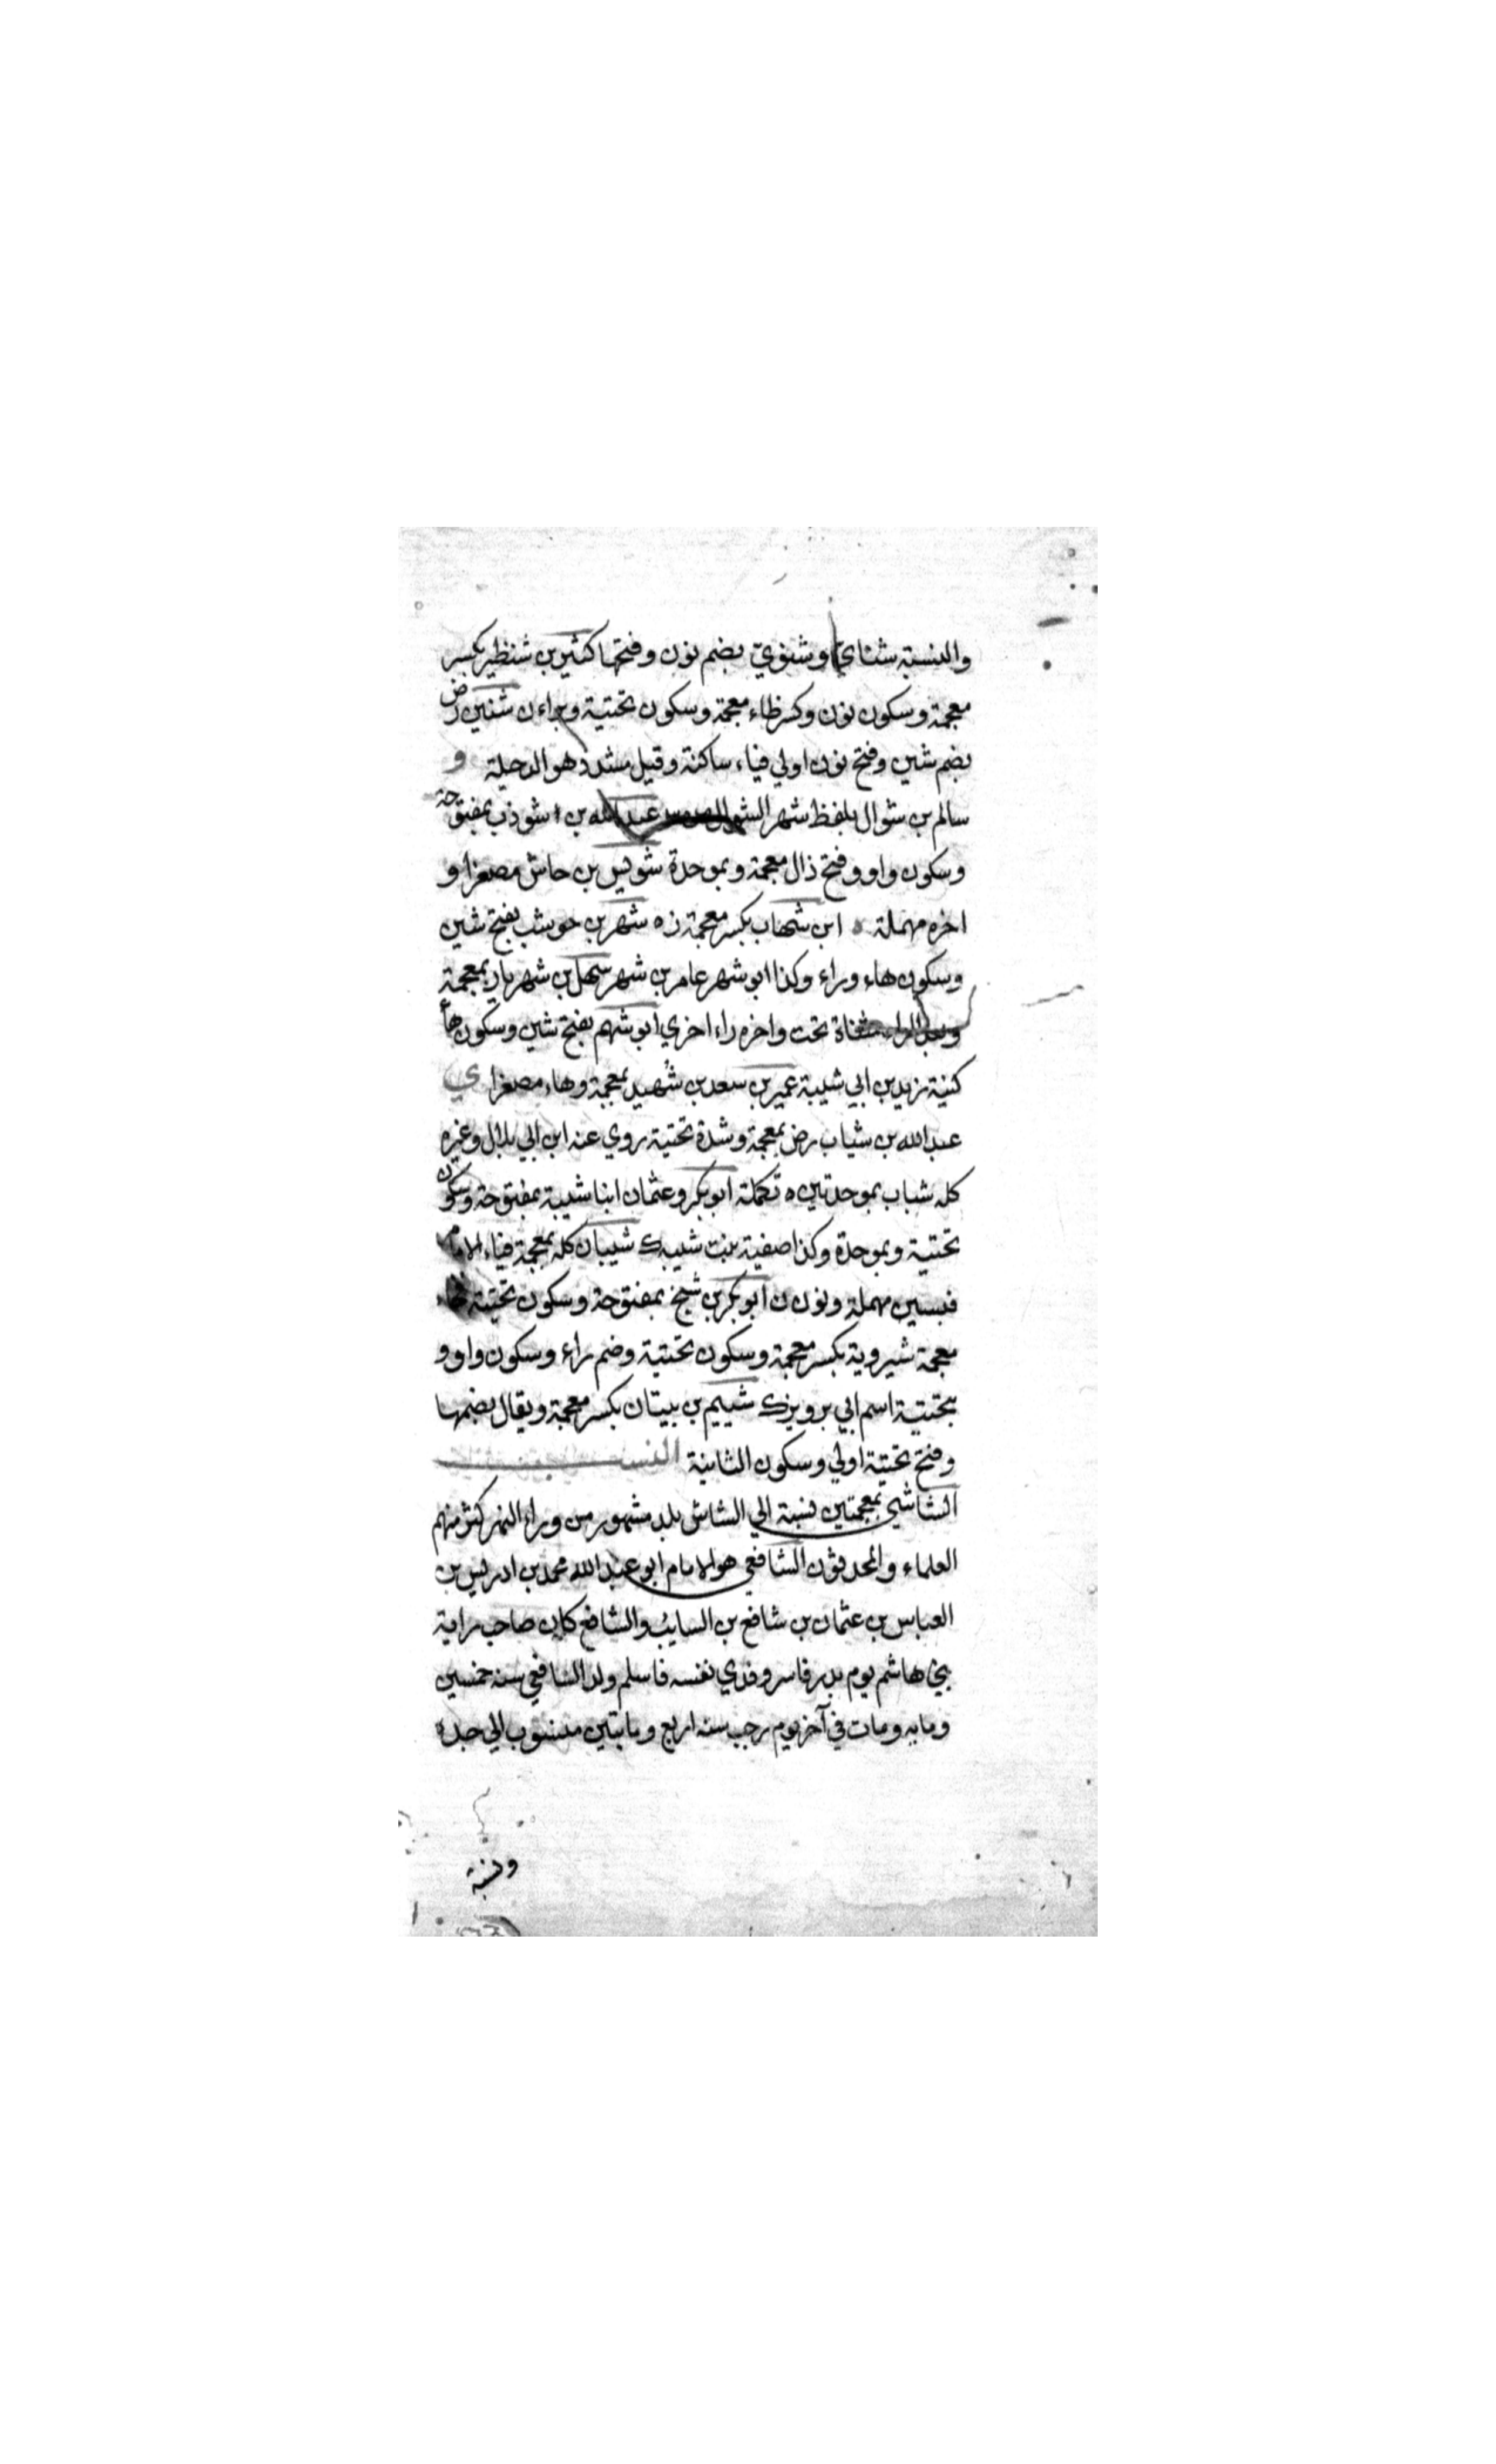 والنسبة شنائي وشنوي بضم نون وفتحها كثير بن شنظير بكسر
معجمة وسكون نون وكسر ظاء معجمة وسكون تحتية وبراء ن شنين رض
بضم شين وفتح نون اولي فياء ساكنة وقيل مشدد ذهو الدحيلة و
سالم بن شوال بلفظ شهر الشوال عبد الله بن شوذب بمفتوحة
وسكون واو وفتح ذال معجمة وبموحدة شويس بن حاش مصغرا و
اخره مهملة ابن شهاب بكسر معجمة زه شهر بن حوشب بفتح شين
وسكون هاء وراء وكذا ابو شهر عامر بن شهر سهل بن شهريار بمعجمة
وبعد الراء مثناة تحت واخره راء اخري ابو شهم بفتح شين وسكون هاء
كنية يزيد بن ابي شيبة عمير بن سعد بن شهيد بمعجمة وهاء مصغرا ي
عبد الله بن شياب رض بمعجمة وشدة تحتية روي عنه ابن ابي بلال وغيره
كله شباب بموحدتين ه تكملة ابو بكر وعثمان ابنا شيبة بمفتوحة وسكون
تحتية وبموحدة وكذا صفية بنت شيبة ك شيبان كله بمعجمة فياء الا ما
فبسين مهملة ونون ن ابو بكر بن شيخ بمفتوحة وسكون تحتية فخاء
معجمة شيروية بكسر معجمة وسكون تحتية وضم راء وسكون واو و
بتحتية اسم ابي برويز ك شييم بن بيتان بكسر معجمة ويقال بضمها
وفتح تحتية اولي وسكون الثانية النسب
الشاشي بمعجمتين نسبة الي الشاش بلد مشهور من وراء النهر كثر منهم
العلماء والمحدثون الشافعي هو الامام ابو عبد الله محمد بن ادريس بن
العباس بن عثمان بن شافع بن السايب والشافع كان صاحب راية
بني هاشم يوم بدر فاسر وفدي نفسه فاسلم ولد الشافعي سنة خمسين
وماية ومات في آخر يوم رجب سنة اربع ومايتين منسوب الي جده
ونسبة